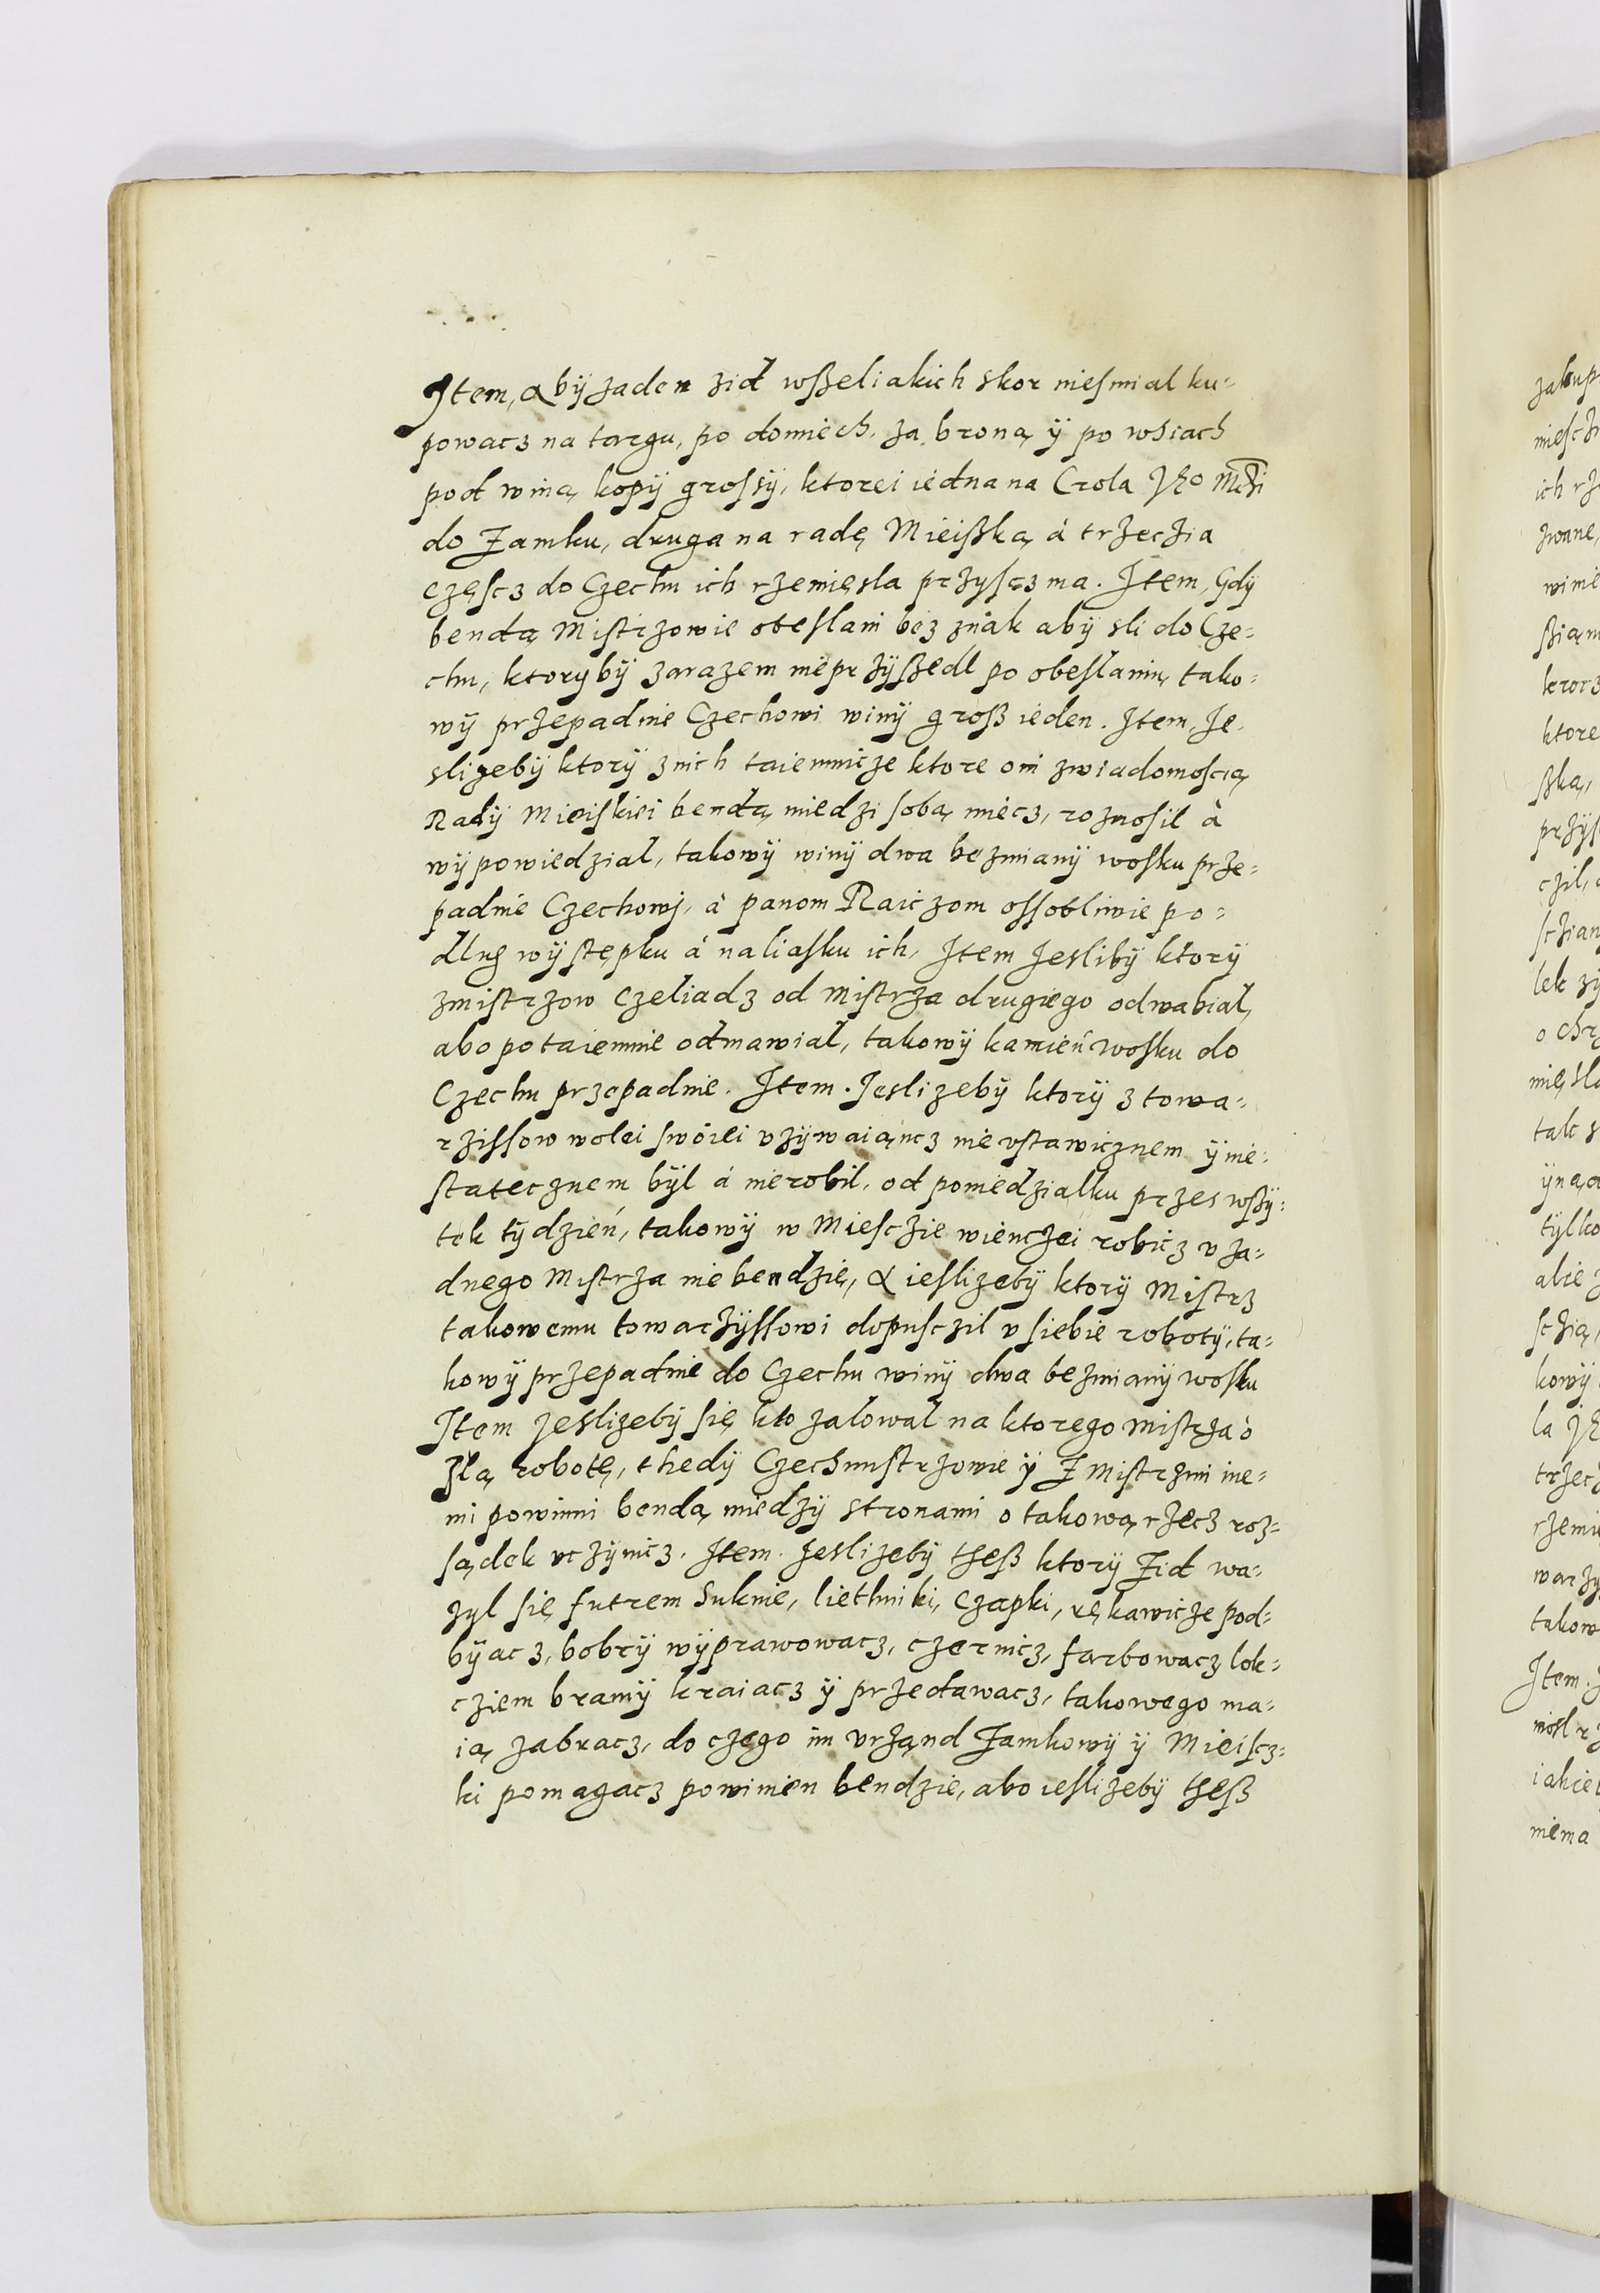 Item, abÿ zaden zid wßeliakich skor niesmial ku-
powacz na targu, po domiech, za broną ÿ po wsiach
pod winą kopÿ grossÿ, ktorei iedna na Crola Jego Mczi
do Zamku, druga na radę Mieißką, à trzeczia
częscz do Czechu ich rzemięsla przyscz ma. Item, Gdÿ
bendą Mistrzowie obeslani bez znak abÿ sli do Cze-
chu, ktorybÿ zarazem nieprzÿßedl po obeslaniu, tako-
wÿ przepadnie Czechowi winÿ groß ieden. Item, Je-
slizebÿ ktorÿ znich taiemnicze ktore oni zwiadomoscią
Radÿ Mieiskiei bendą miedzi sobą miecz, roznosil à
wÿpowiedzial, takowÿ winÿ dwa bezmianÿ wosku prze-
padnie Czechowj, à panom Raiczom ossobliwie po-
dlug wÿstępku à naliasku ich, Item Jeslibÿ ktorÿ
zmistrzow Czeliadz od Mistrza drugiego odwabial,
abo potaiemnie odmawial, takowÿ kamień wosku do
Czechu przepadnie. Item. Jeslizebÿ ktorÿ z towa-
rzissow wolei swoiei vzÿwaiąncz nievstawicznem ÿ nie-
statecznem bÿl à nierobil, od poniedzialku przes wßÿ-
tek tÿdzień, takowÿ w Miesczie wienczei robicz v za-
dnego Mistrza nie bendzie, & ieslizebÿ ktorÿ Mistrz
takowemu towarzÿssowi dopusczil v siebie robotÿ, ta-
kowÿ przepadnie do Czechu winÿ dwa bezmianÿ wosku
Item Jeslizebÿ się kto zalowal na ktorego Mistrza o
złą robotę, thedÿ Czechmistrzowie ÿ Z Mistrzmi ine-
mi powinni bendą miedzÿ stronami o takową rzecz roz-
sądek vczÿnicz. Item. Jeslizebÿ theß ktorÿ Zid wa-
zyl się futrem Suknie, liethniki, Czapki, rękawicze pod-
bÿacz, bobrÿ wÿprawowacz, czernicz, farbowacz lok-
cziem bramÿ kraiacz ÿ przedawacz, takowego ma-
ią zabracz, do czego im vrząnd Zamkowÿ ÿ Mieiscz-
ki pomagacz powinien bendzie, abo ieslizebÿ theß